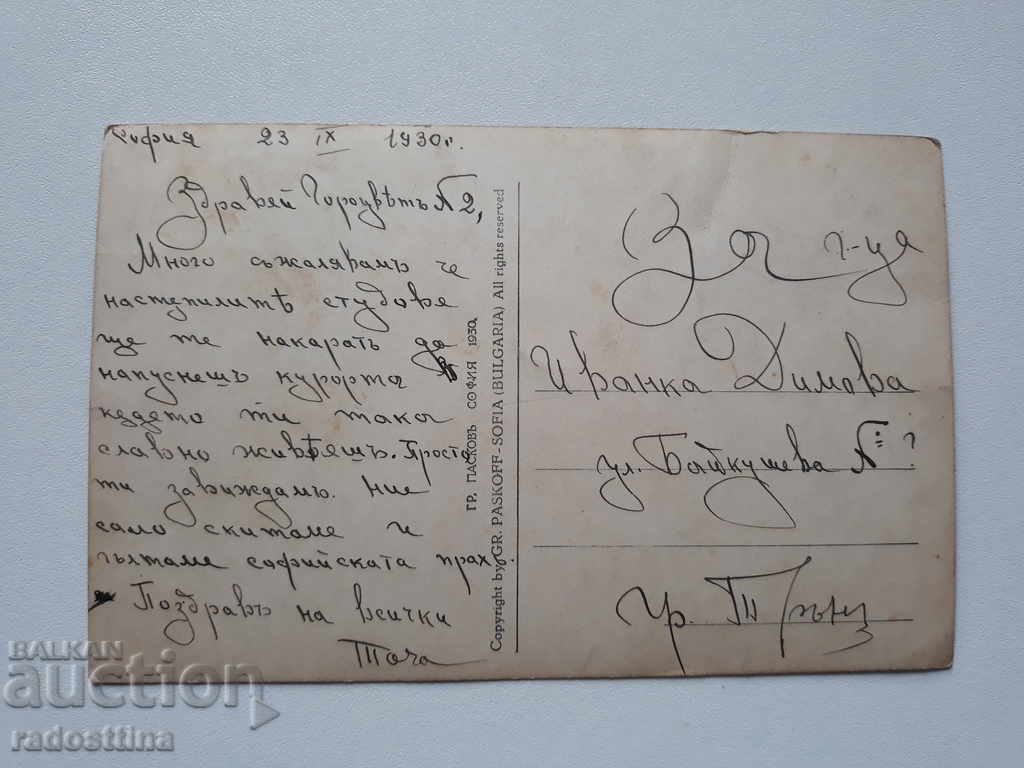 София 23 IX 1930г.
Здравей Гороцветъ № 2,
Много съжалявамъ че
настѫпилитѣ студове
ще те накарать да
напуснешъ курорта
кѫдето ти тако
славно живѣешъ. Просто
ти завиждамъ. Ние
само скитаме и
гълтаме софийската прах.
Поздравъ на всички
Точа
ГР. ПАСКОВЪ СОФИЯ 1930
Copyright by GR. PASKOFF - SOFIA (BULGARIA) All rights reserved
За г-ца
Иванка Димова
ул. Байкушева № ?
гр. Трънъ
BALKAN
auction
radosttina